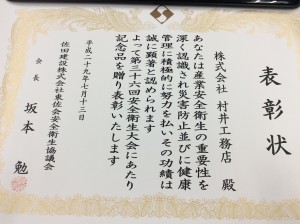 表彰状
株式会社 村井工務店 殿
あなたは産業安全衛生の重要性を
深く認識され災害防止並びに健康
管理に積極的に努力を払いその功績は
誠に顕著と認められます
よって第三十六回安全衛生大会にあたり
記念品を贈り表彰いたします
平成二十九年七月十三日
佐田建設株式会社東佐会安全衛生協議会
会長 坂本 勉